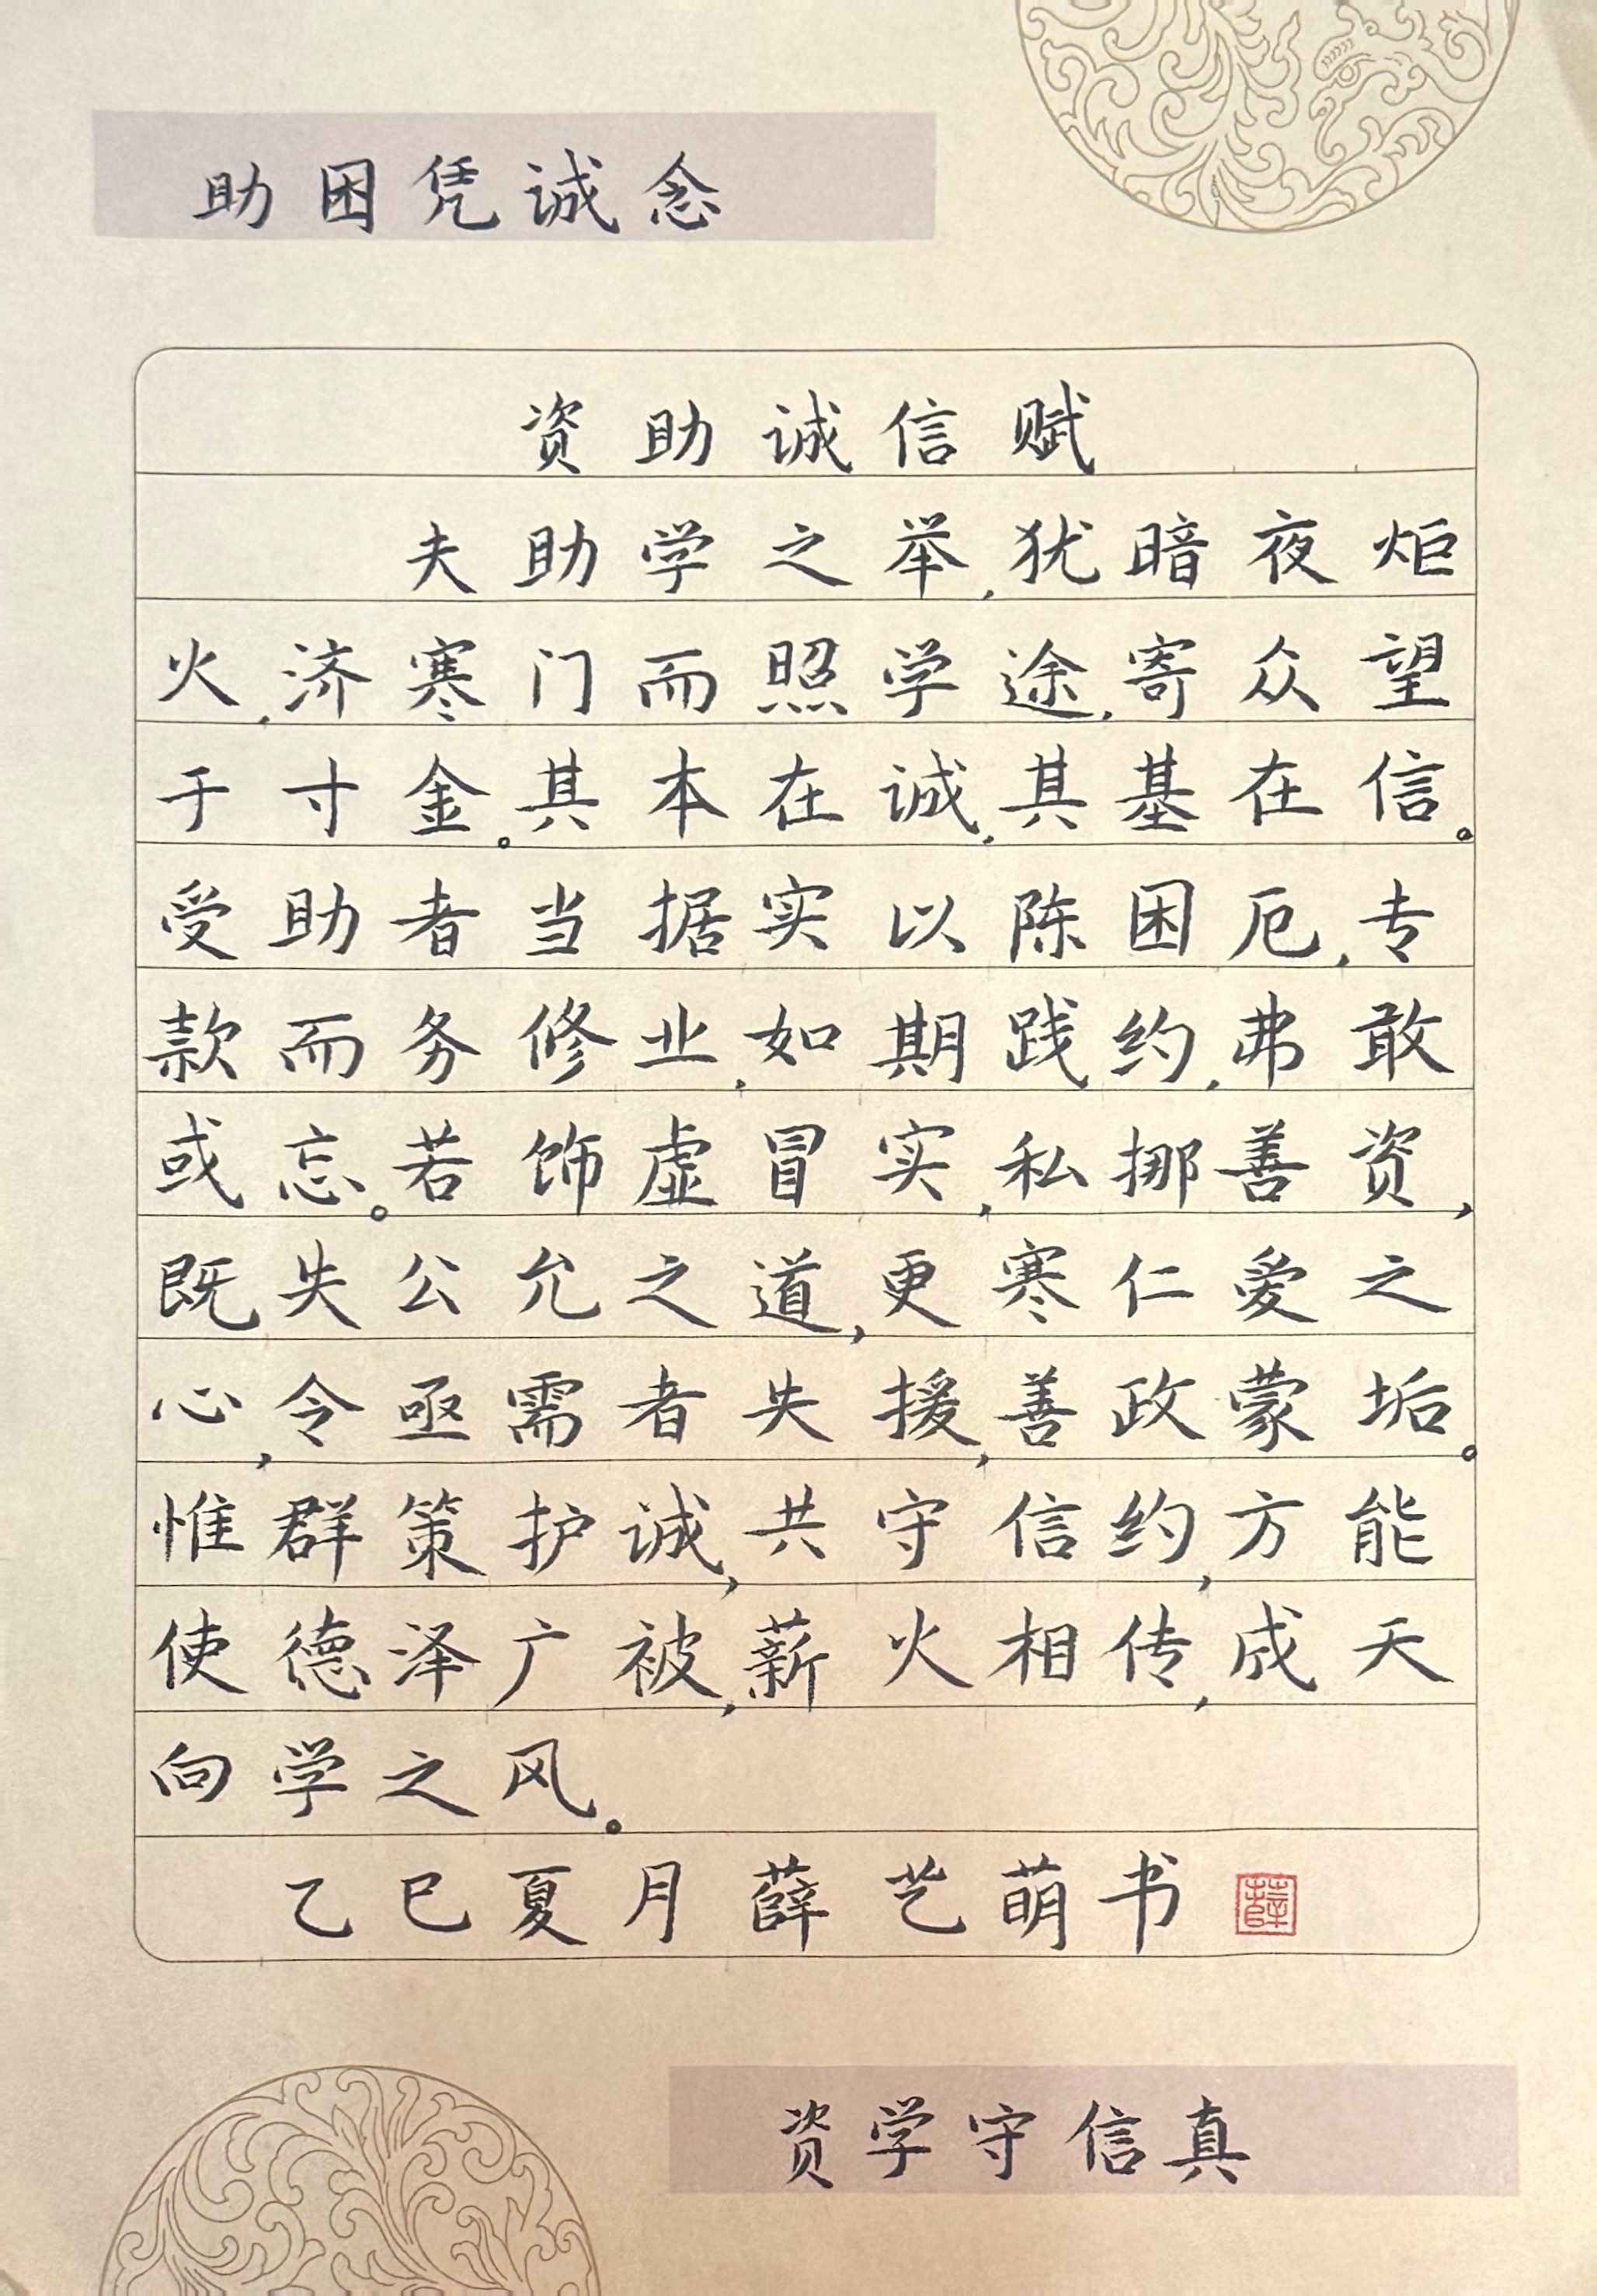 助困凭诚念
资助诚信赋
夫助学之举,犹暗夜炬
火,济寒门而照学途,寄众望
于寸金。其本在诚,其基在信。
受助者当据实以陈困厄,专
款而务修业,如期践约,弗敢
或忘。若饰虚冒实,私挪善资,
既失公允之道,更寒仁爱之
心,令亟需者失援,善政蒙垢。
惟群策护诚,共守信约,方能
使德泽广被,薪火相传,成天
向学之风。
乙巳夏月薛艺萌书 薛
资学守信真